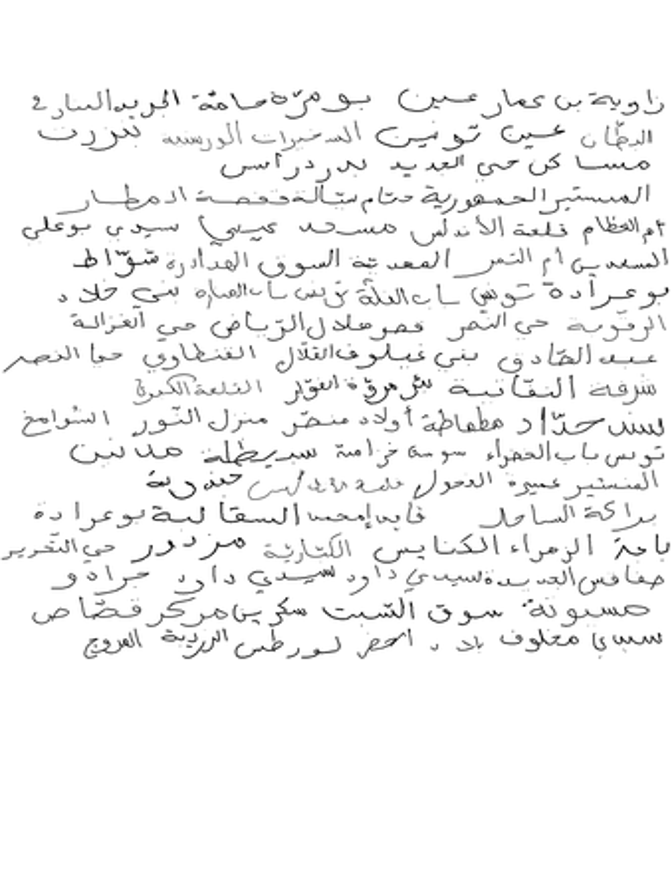 زاوية بن عمار عين بومرّة حامة الجريد المنارة 2
البطّان عين تونين السخيرات الورسنية بنزرت
مساكن حي الحديد بدر دراسن
المنستير الجمهورية ختام نبّالة قفصة المطار
أم العظام قلعة الأندلس مسجد عيسى سيدي بوعلي
السعدين أم التمر المعدية السوق الهدادرة شوّاط
بوعرادة تونس باب العلّة تونس باب المنارة بني خلاد
الرقوبة حي النصر قصر هلال الرياض حي الغزالة
عبد الصّادق بني غيلوف القلال القنطاوي حي النصر
شرفة النقانية الفوّار القلعة الكبرى
سند حدّاد مطماطة أولاد منصر منزل النّور الشوامخ
تونس باب الخضراء سوسة خزامة سبيطلة مدنين
المنستير عميرة الفحول قلعة الأندلس جندوبة
براكة الساحل قابس السقالبة بوعرادة
باجة الزهراء الكنايس الكتاريّة مزدور حي التحرير
صفاقس الجديدة سيدي داود سيدي داود جرادو
حسيونة سوق السّبت سكرين مركز قصّاص
سيدي مخلوف بلاد الحضر لورطس الرديفة المروج